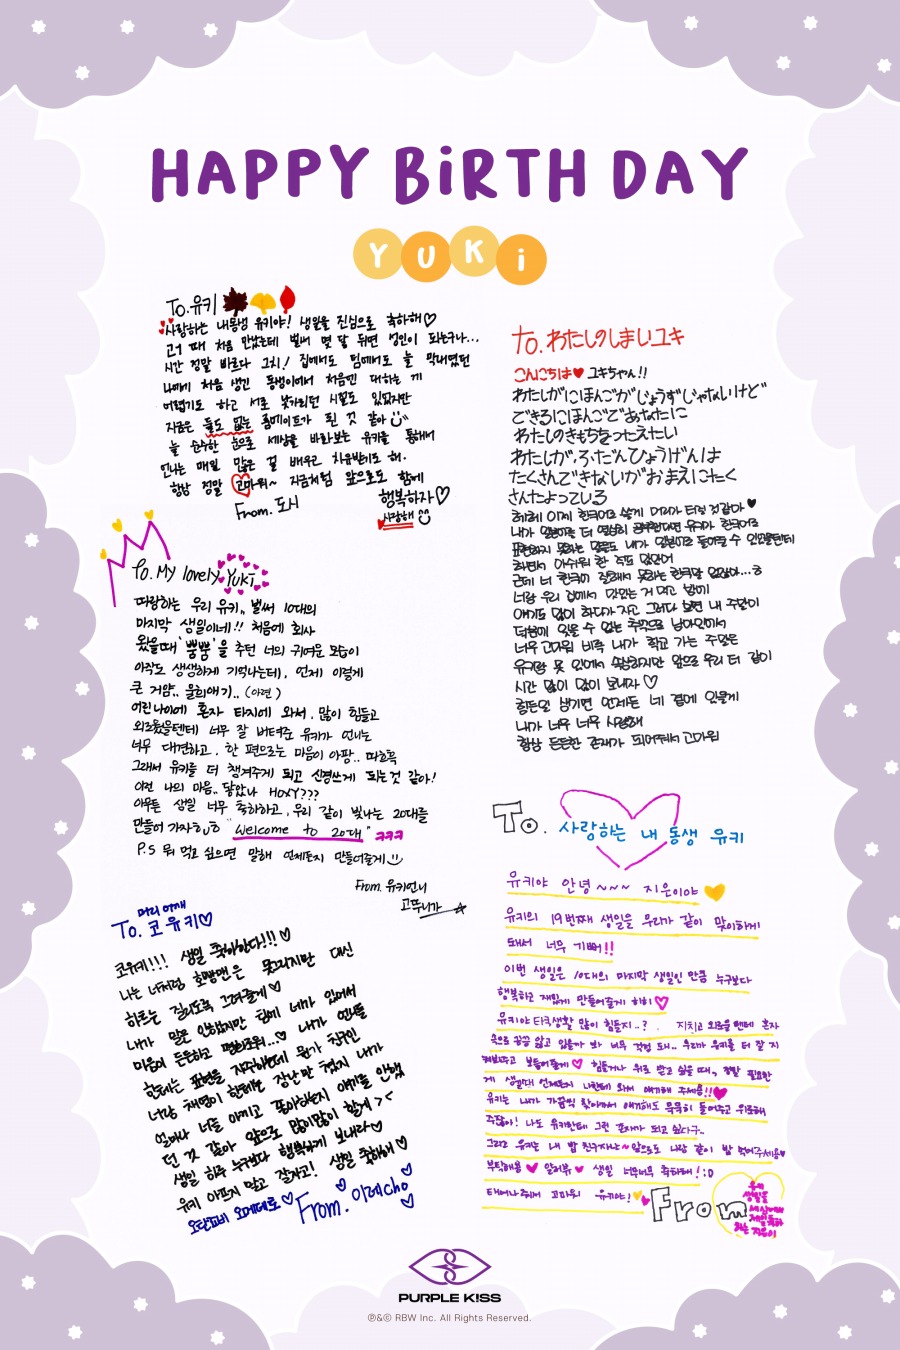 HAPPY BiRTH DAY
YUKi
To.유키
사랑하는 내동생 유키야! 생일을 진심으로 축하해♡
고1 때 처음 만났는데 벌써 몇 달 뒤면 성인이 되는구나...
시간 정말 빠르다 그치! 집에서도 팀에서도 늘 막내였던
나에게 처음 생긴 동생이여서 처음엔 대하는 게
어렵기도 하고 서로 낯가리던 시절도 있었지만
지금은 둘도 없는 룸메이트가 된 것 같아
늘 순수한 눈으로 세상을 바라보는 유키를 통해서
언니는 매일 많은 걸 배우고 치유받기도 해.
항상 정말 고마워~ 지금처럼 앞으로도 함께
행복하자♡
From. 도시
사랑해
To. My lovely Yuki
따랑하는 우리 유키.. 벌써 10대의
마지막 생일이네!! 처음에 회사
왔을때 '뿜뿜'을 추던 너의 귀여운 모습이
아직도 생생하게 기억나는데, 언제 이렇게
큰 거얌.. 울희애기.. (아련)
어린나이에 혼자 타지에 와서, 많이 힘들고
외로웠을텐데 너무 잘 버텨준 유키가 언니는
너무 대견하고, 한 편으로는 마음이 아팡..
그래서 유키를 더 챙겨주게 되고 신경쓰게 되는것 같아!
이런 나의 마음.. 닿았나 HOXY???
아무튼 생일 너무 축하하고, 우리 같이 빛나는 20대를
만들어 가자
"Welcome to 20대" ㅋㅋㅋ
P.S 뭐 먹고 싶으면 말해 언제든지 만들어줄게
From. 유키언니
고뚜니가
머리 어깨
To. 코유키♡
코유키!!! 생일 축하한다!!! ♡
나는 너처럼 호빵맨은 못그리지만 대신
하트는 질리도록 그려줄게♡
내가 말은 안했지만 함께 네가 있어서
마음이 든든하고 편하조워...♡ 내가 멤버들
한테는 표현을 자주하는데 뭔가 친구인
너랑 채영이 한테는 장난만 쳤지 내가
얼마나 너를 아끼고 좋아하는지 얘기를 안했
던 것 같아 앞으로 많이많이 할게 > <
생일 하루 누구보다 행복하게 보내라♡
유키 아프지 말고 잘자고! 생일 축하해♡
오탄죠비 오메데토♡
From. 이레cho
to. わたしのしまいユキ
こんにちは♥ ユキちゃん!!
わたしがにほんごがじょうずじゃないけど
できるにほんごであなたに
わたしのきもちをつたえたい
わたしが、ふだんひょうげんは
たくさんできないがおまえにたく
さんたよっている
헤헤 이제 한국어로 쓸게 머리가 터질 것같아 ♥
내가 일본어를 더 열심히 공부한다면 유키가 한국어로
표현하지 못하는 말들도 내가 일본어로 들어줄 수 있을텐데
하면서 아쉬워 한 적도 많았어
근데 너 한국어 잘해서 못하는 한국말 없잖아...ㅎ
너랑 우리 집에서 맛있는 거 먹고 밤에
얘기도 많이 하다가 자고 그러다 보면 내 주말이
더없이 잊을 수 없는 추억으로 남아있어서
너무 고마워 비록 내가 학교 가는 주말은
유키랑 못 있어서 속상하지만 앞으로 우리 더 같이
시간 많이 많이 보내자 ♡
힘든일 생기면 언제든 네 곁에 있을게
내가 너무 너무 사랑해
항상 든든한 존재가 되어줘서 고마워
To. 사랑하는 내 동생 유키
유키야 안녕~~~ 지은이야
유키의 19번째 생일을 우리가 같이 맞이하게
돼서 너무 기뻐!!
이번 생일은 10대의 마지막 생일인 만큼 누구보다
행복하고 재밌게 만들어줄게 히히♡
유키야 타국생활 많이 힘들지..? . 지치고 외로울 텐데 혼자
속으로 끙끙 앓고 있을까 봐 너무 걱정 도ㅐ.. 우리가 유키를 더 잘 지
켜봐주고 보듬어줄게♡ 힘들거나 위로 받고 싶을 때, 정말 필요한
게 생길때 언제든지 나한테 와서 얘기해 주세용!!♥
유키는 내가 가끔씩 찾아가서 얘기해도 묵묵히 들어주고 위로해
주잖아! 나도 유키한테 그런 존재가 되고 싶다구..
그리고 유키는 내 밥 친구자나~앞으로도 나랑 같이 밥 먹어주세용♥
부탁해용 ♥ 알러뷰 ♥ 생일 너무너무 축하해!:D
태어나줘서 고마워 유키야!
From
유키
생일을
세상에서
제일축하
하는 지은이
PURPLE KISS
℗&© RBW Inc. All Rights Reserved.